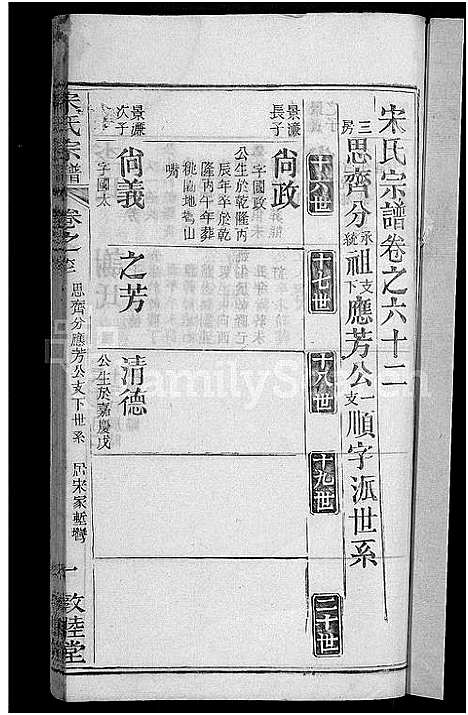 宋氏宗譜卷之六十二
三房思齊分承統祖支下應芳公一支順字派世系
十六世
十七世
十八世
十九世
二十世
景濂長子
尙政
字國政
公生於乾隆丙
辰年卒於乾
隆丙午年葬
桃山
嘴
景濂次子
尙義
字國太
之芳
清德
公生於嘉慶戊
宋氏宗譜
卷之
思齊分應芳公支下世系
居宋家
一
敦睦堂
FamilySearch